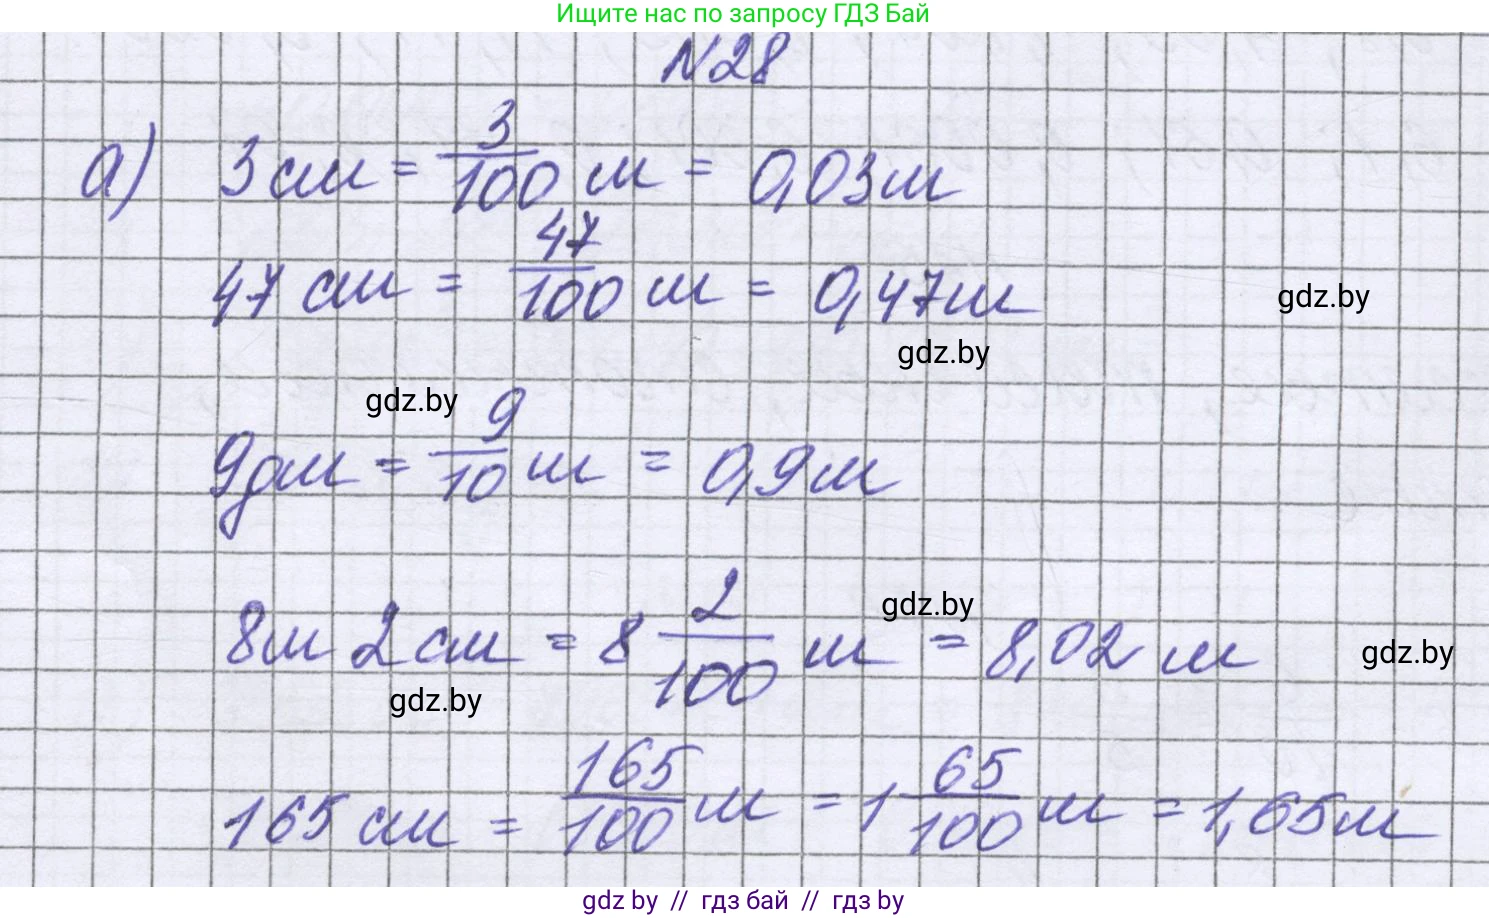 Ищите нас по запросу ГДЗ Бай
№28
а) 3 см = 3/100 м = 0,03 м
47 см = 47/100 м = 0,47 м
gdz.by
gdz.by
gdz.by
9 дм = 9/10 м = 0,9 м
gdz.by
8 м 2 см = 8 2/100 м = 8,02 м
gdz.by
gdz.by
165 см = 165/100 м = 1 65/100 м = 1,65 м
gdz.by // гдз бай // гдз by